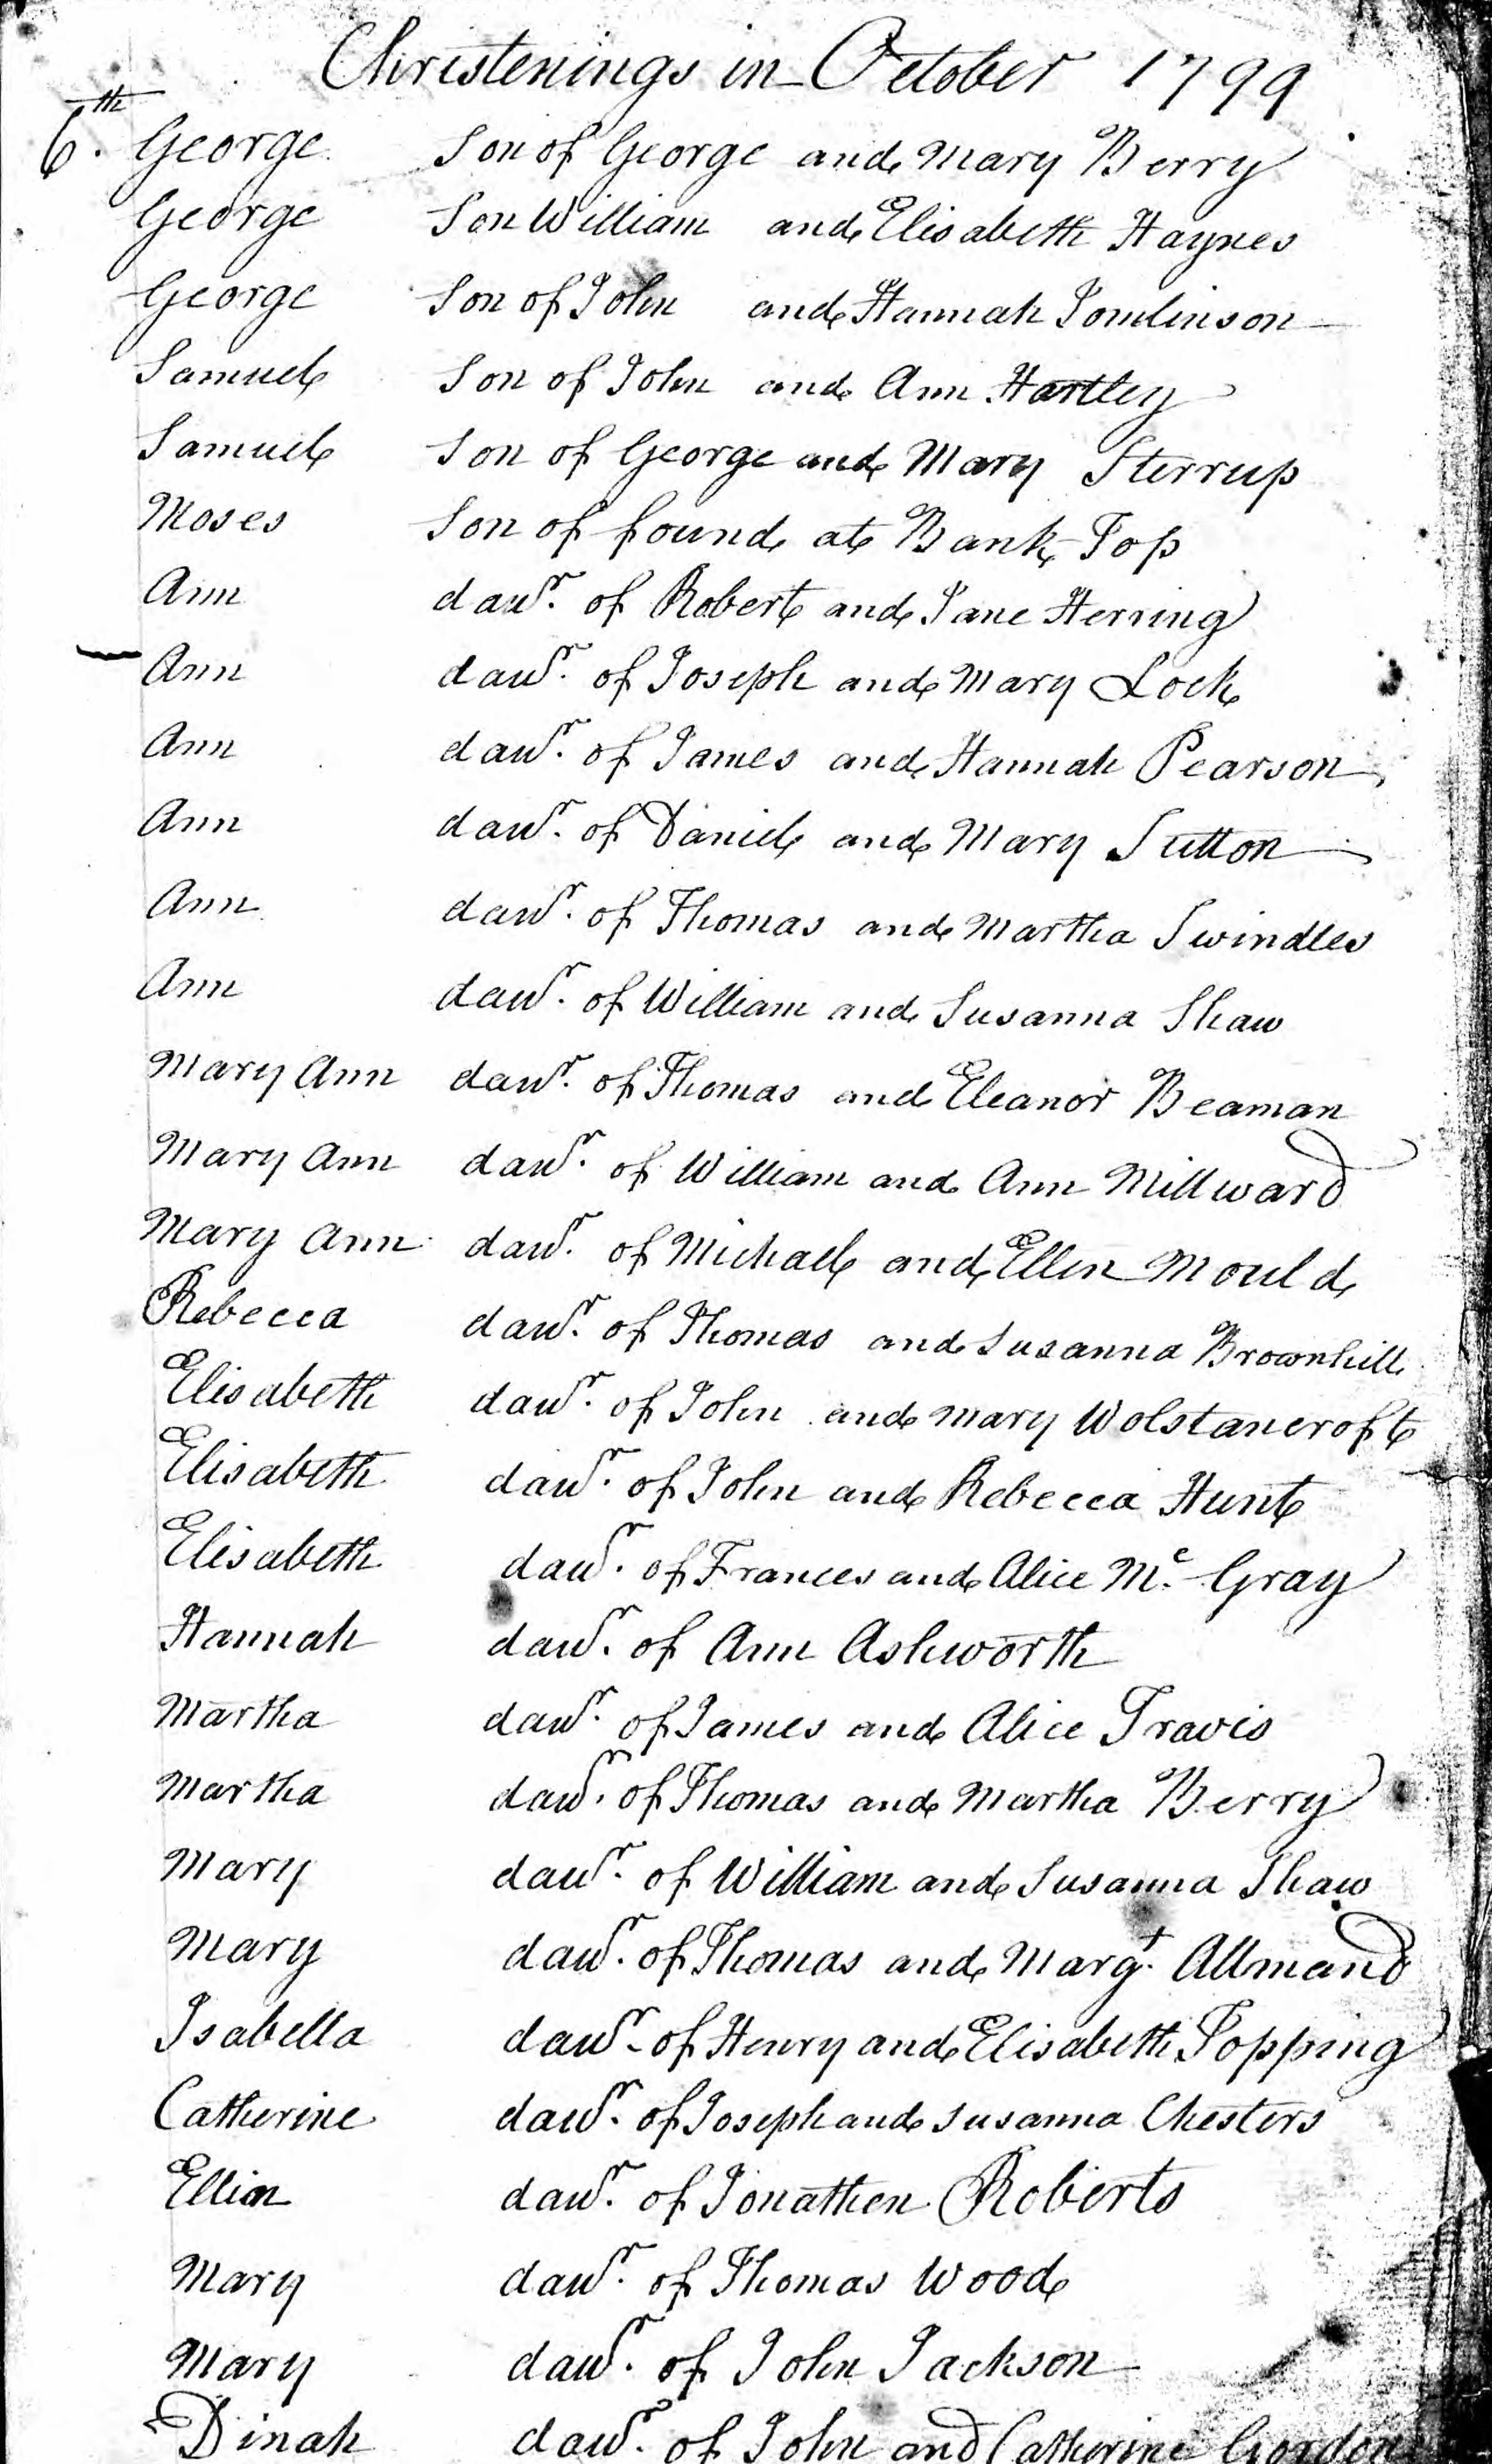 Christenings in October 1799
6.th George Son of George and Mary Berry
George Son William and Elisabeth Haynes
George Son of John and Hannah Tomlinson
Samuel Son of John and Ann Hartley
Samuel Son of George and Mary Sterrup
Moses Son of found at Bank Top
Ann dawr. of Robert and Jane Herring
Ann dawr. of Joseph and Mary Lock
Ann dawr. of James and Hannah Pearson
Ann dawr. of Daniel and Mary Sutton
Ann dawr. of Thomas and Martha Swindles
Ann dawr. of William and Susanna Shaw
Mary Ann dawr. of Thomas and Eleanor Beaman
Mary Ann dawr. of William and Ann Millward
Mary Ann dawr. of Michael and Ellen Mould
Rebecca dawr. of Thomas and Susanna Brownhill
Elisabeth dawr. of John and Mary Wolstancroft
Elisabeth dawr. of John and Rebecca Hunt
Elisabeth dawr. of Frances and Alice Mc. Gray
Hannah dawr. of Ann Ashworth
Martha dawr. of James and Alice Travis
Martha dawr. of Thomas and Martha Berry
Mary dawr. of William and Susanna Shaw
Mary dawr. of Thomas and Margt. Allmand
Isabella dawr. of Henry and Elisabeth Topping
Catherine dawr. of Joseph and Susanna Chesters
Ellin dawr. of Jonathen Roberts
Mary dawr. of Thomas Wood
Mary dawr. of John Jackson
Dinah dawr. of John and Catherine Gordon